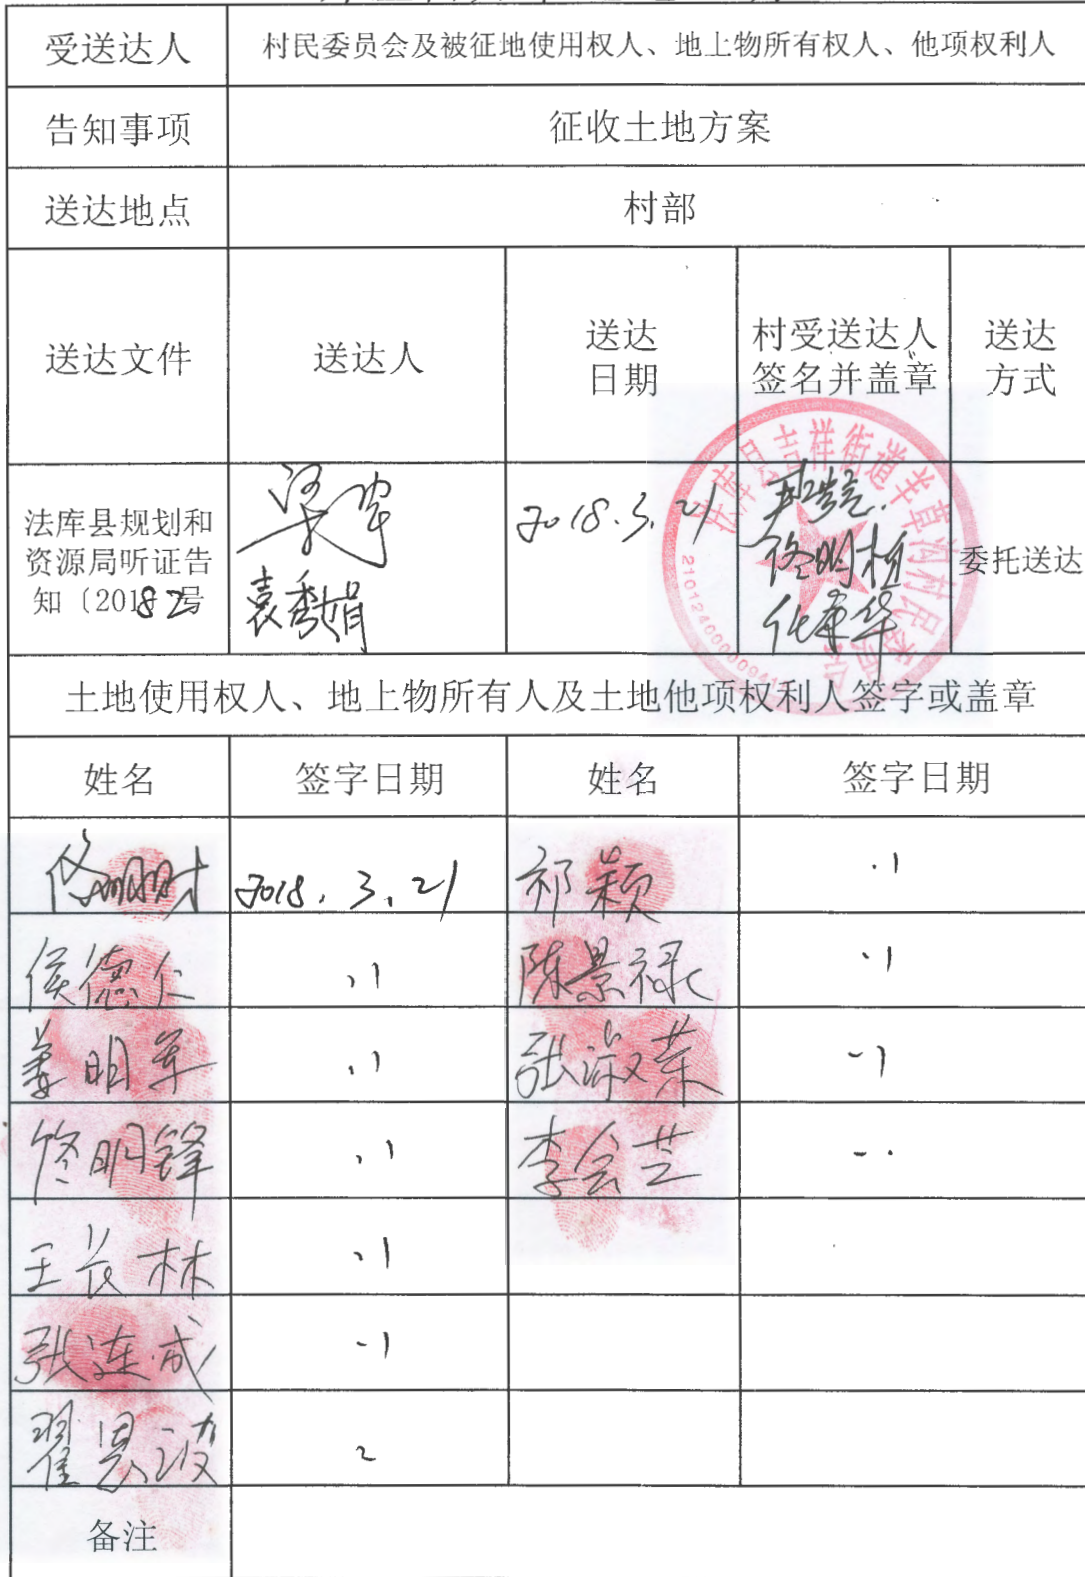 受送达人 村民委员会及被征地使用权人、地上物所有权人、他项权利人
告知事项 征收土地方案
送达地点 村部
送达文件 送达人 送达日期 村受送达人签名并盖章 送达方式
法库县规划和
资源局听证告
知〔2018 2号
袁秀娟
2018.3.21
佟明植
委托送达
法库县吉祥街道羊草沟村民委员会
土地使用权人、地上物所有人及土地他项权利人签字或盖章
姓名 签字日期 姓名 签字日期
2018.3.21 祁颖
侯德仁 陈景禄
姜明军 张淑荣
佟明锋 李会芝
王长林
张连成
翟恩波
备注